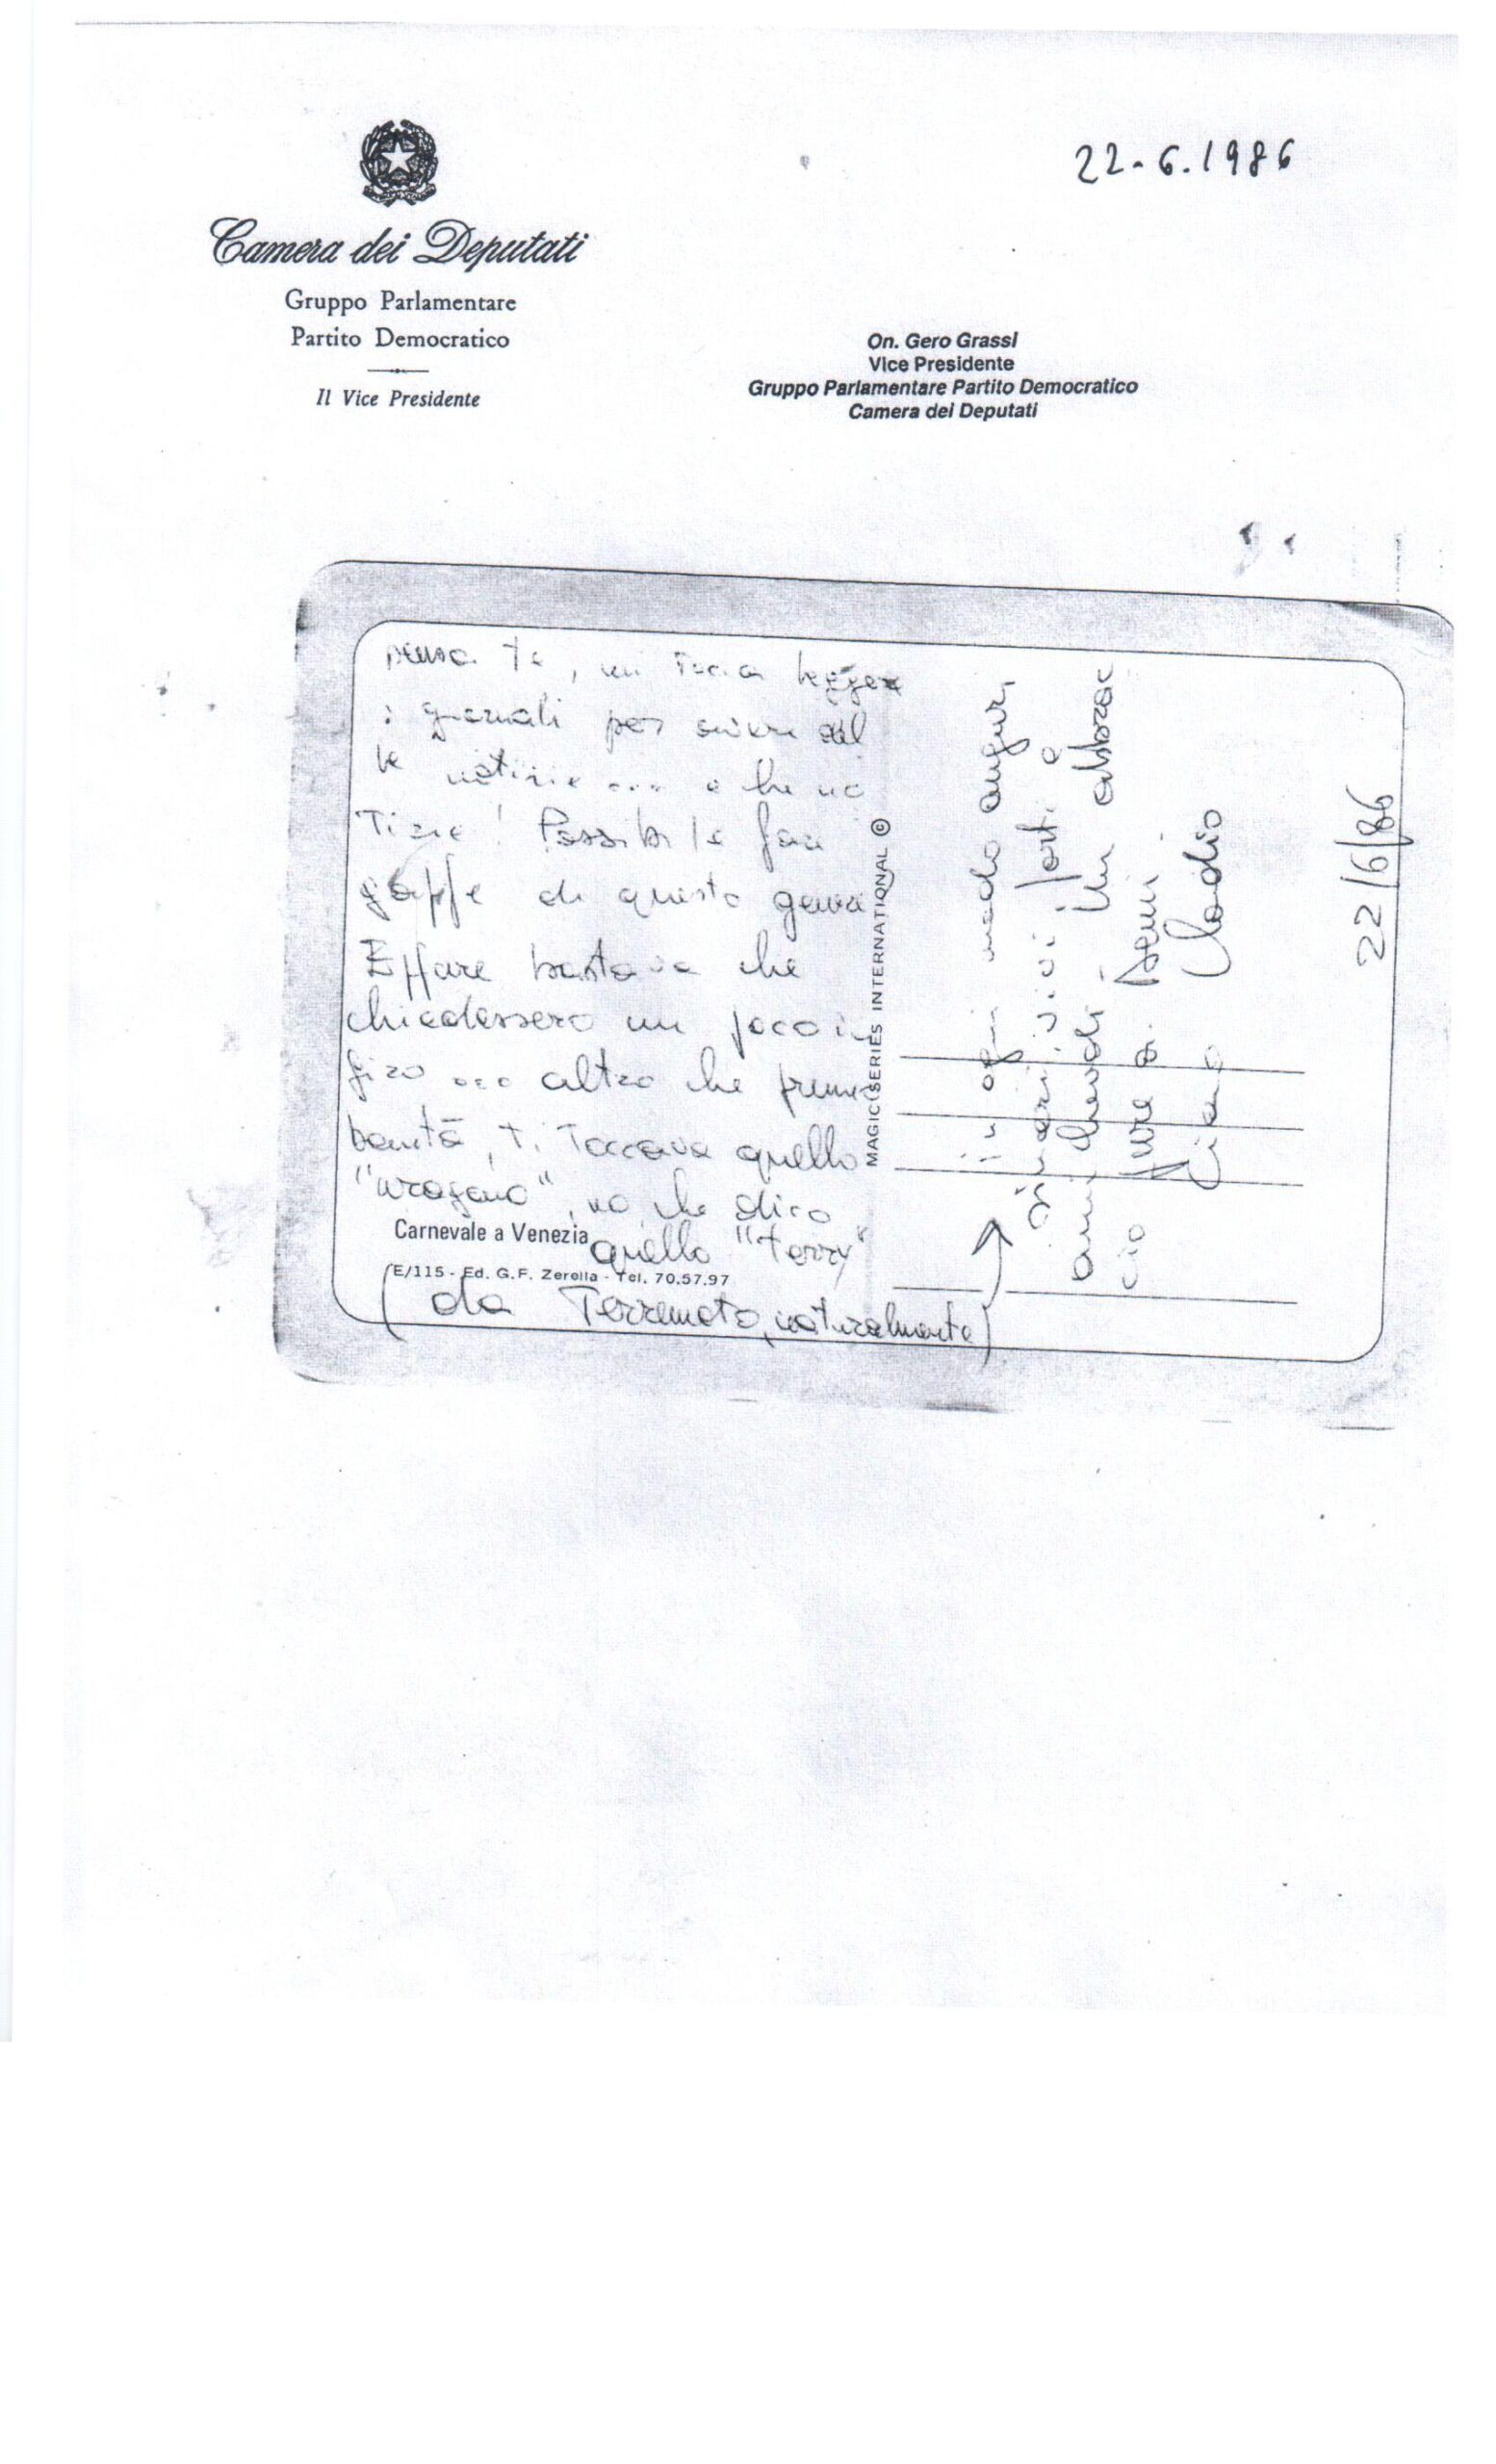 22-6.1986
Camera dei Deputati
Gruppo Parlamentare
Partito Democratico
Il Vice Presidente
On. Gero Grassi
Vice Presidente
Gruppo Parlamentare Partito Democratico
Camera dei Deputati
pensa te, mi tocca leggere
i giornali per avere del
le notizie ... e che no
Tizie! Possibile fare
gaffe di questo genere
Eppure bastava che
chiedessero un poco in
giro ... altro che
bontà, ti Toccava quello
"uragano", no che dico
quello "Terry"
(da Terremoto, naturalmente)
Carnevale a Venezia
E/115 - Ed. G.F. Zerella - Tel. 70.57.97
MAGIC SERIES INTERNATIONAL ©
in ogni modo auguri
forti e
Un abbrac
cio
Claudio
22/6/86